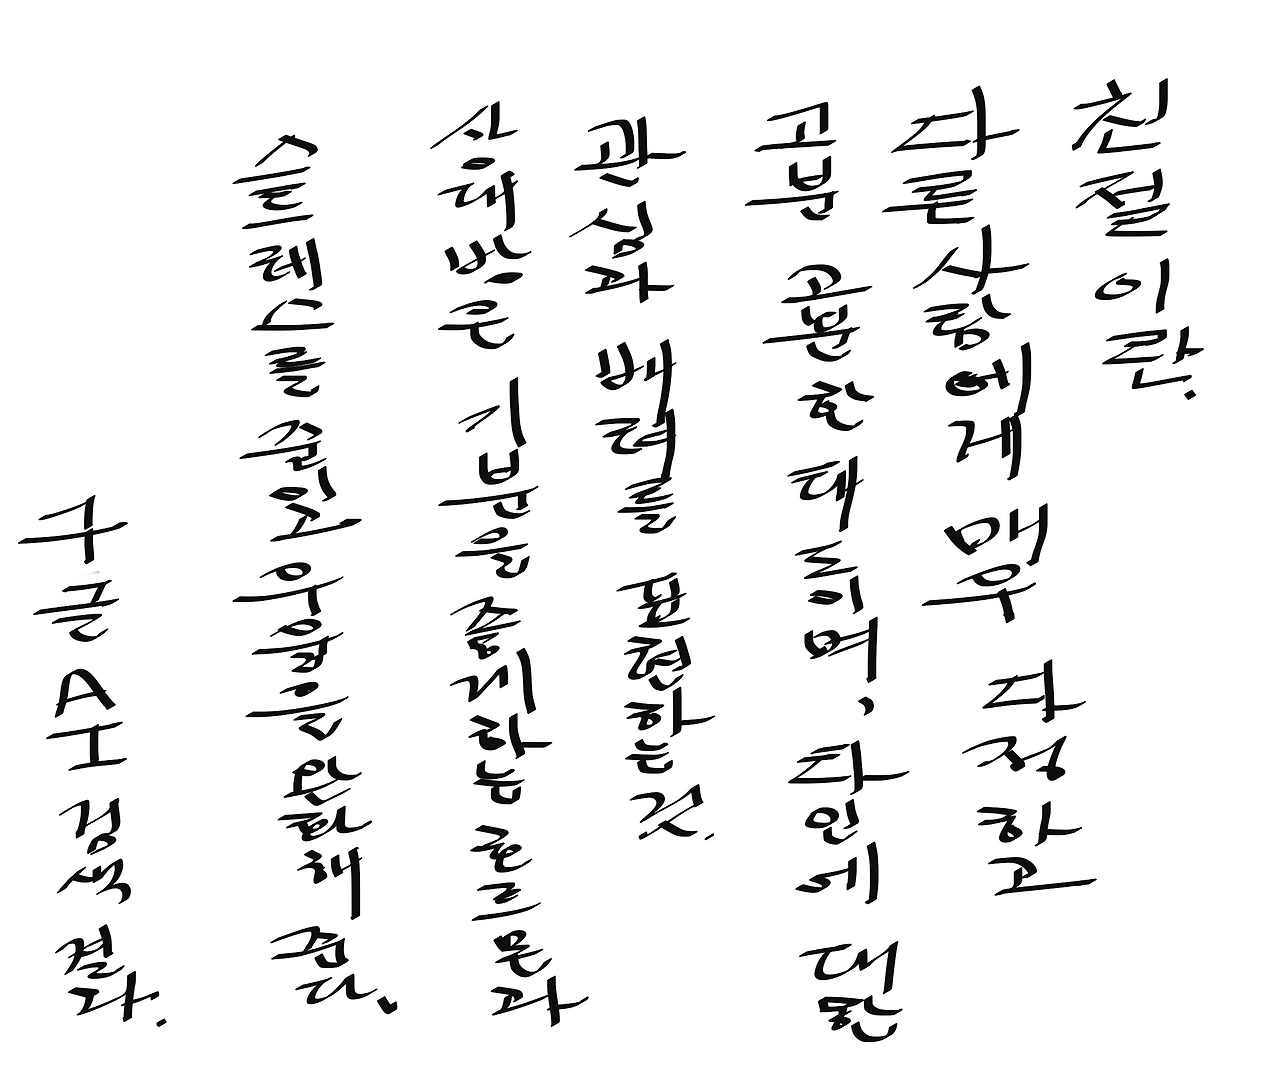 친절이란.
다른 사람에게 매우 다정하고
고분 고분한 태도이며, 타인에 대한
관심과 배려를 표현하는 것.
상대방은 기분을 좋게하는 호르몬과
스트레스를 줄이고 우울을 완화해 준다.
구글 AI 검색 결과.